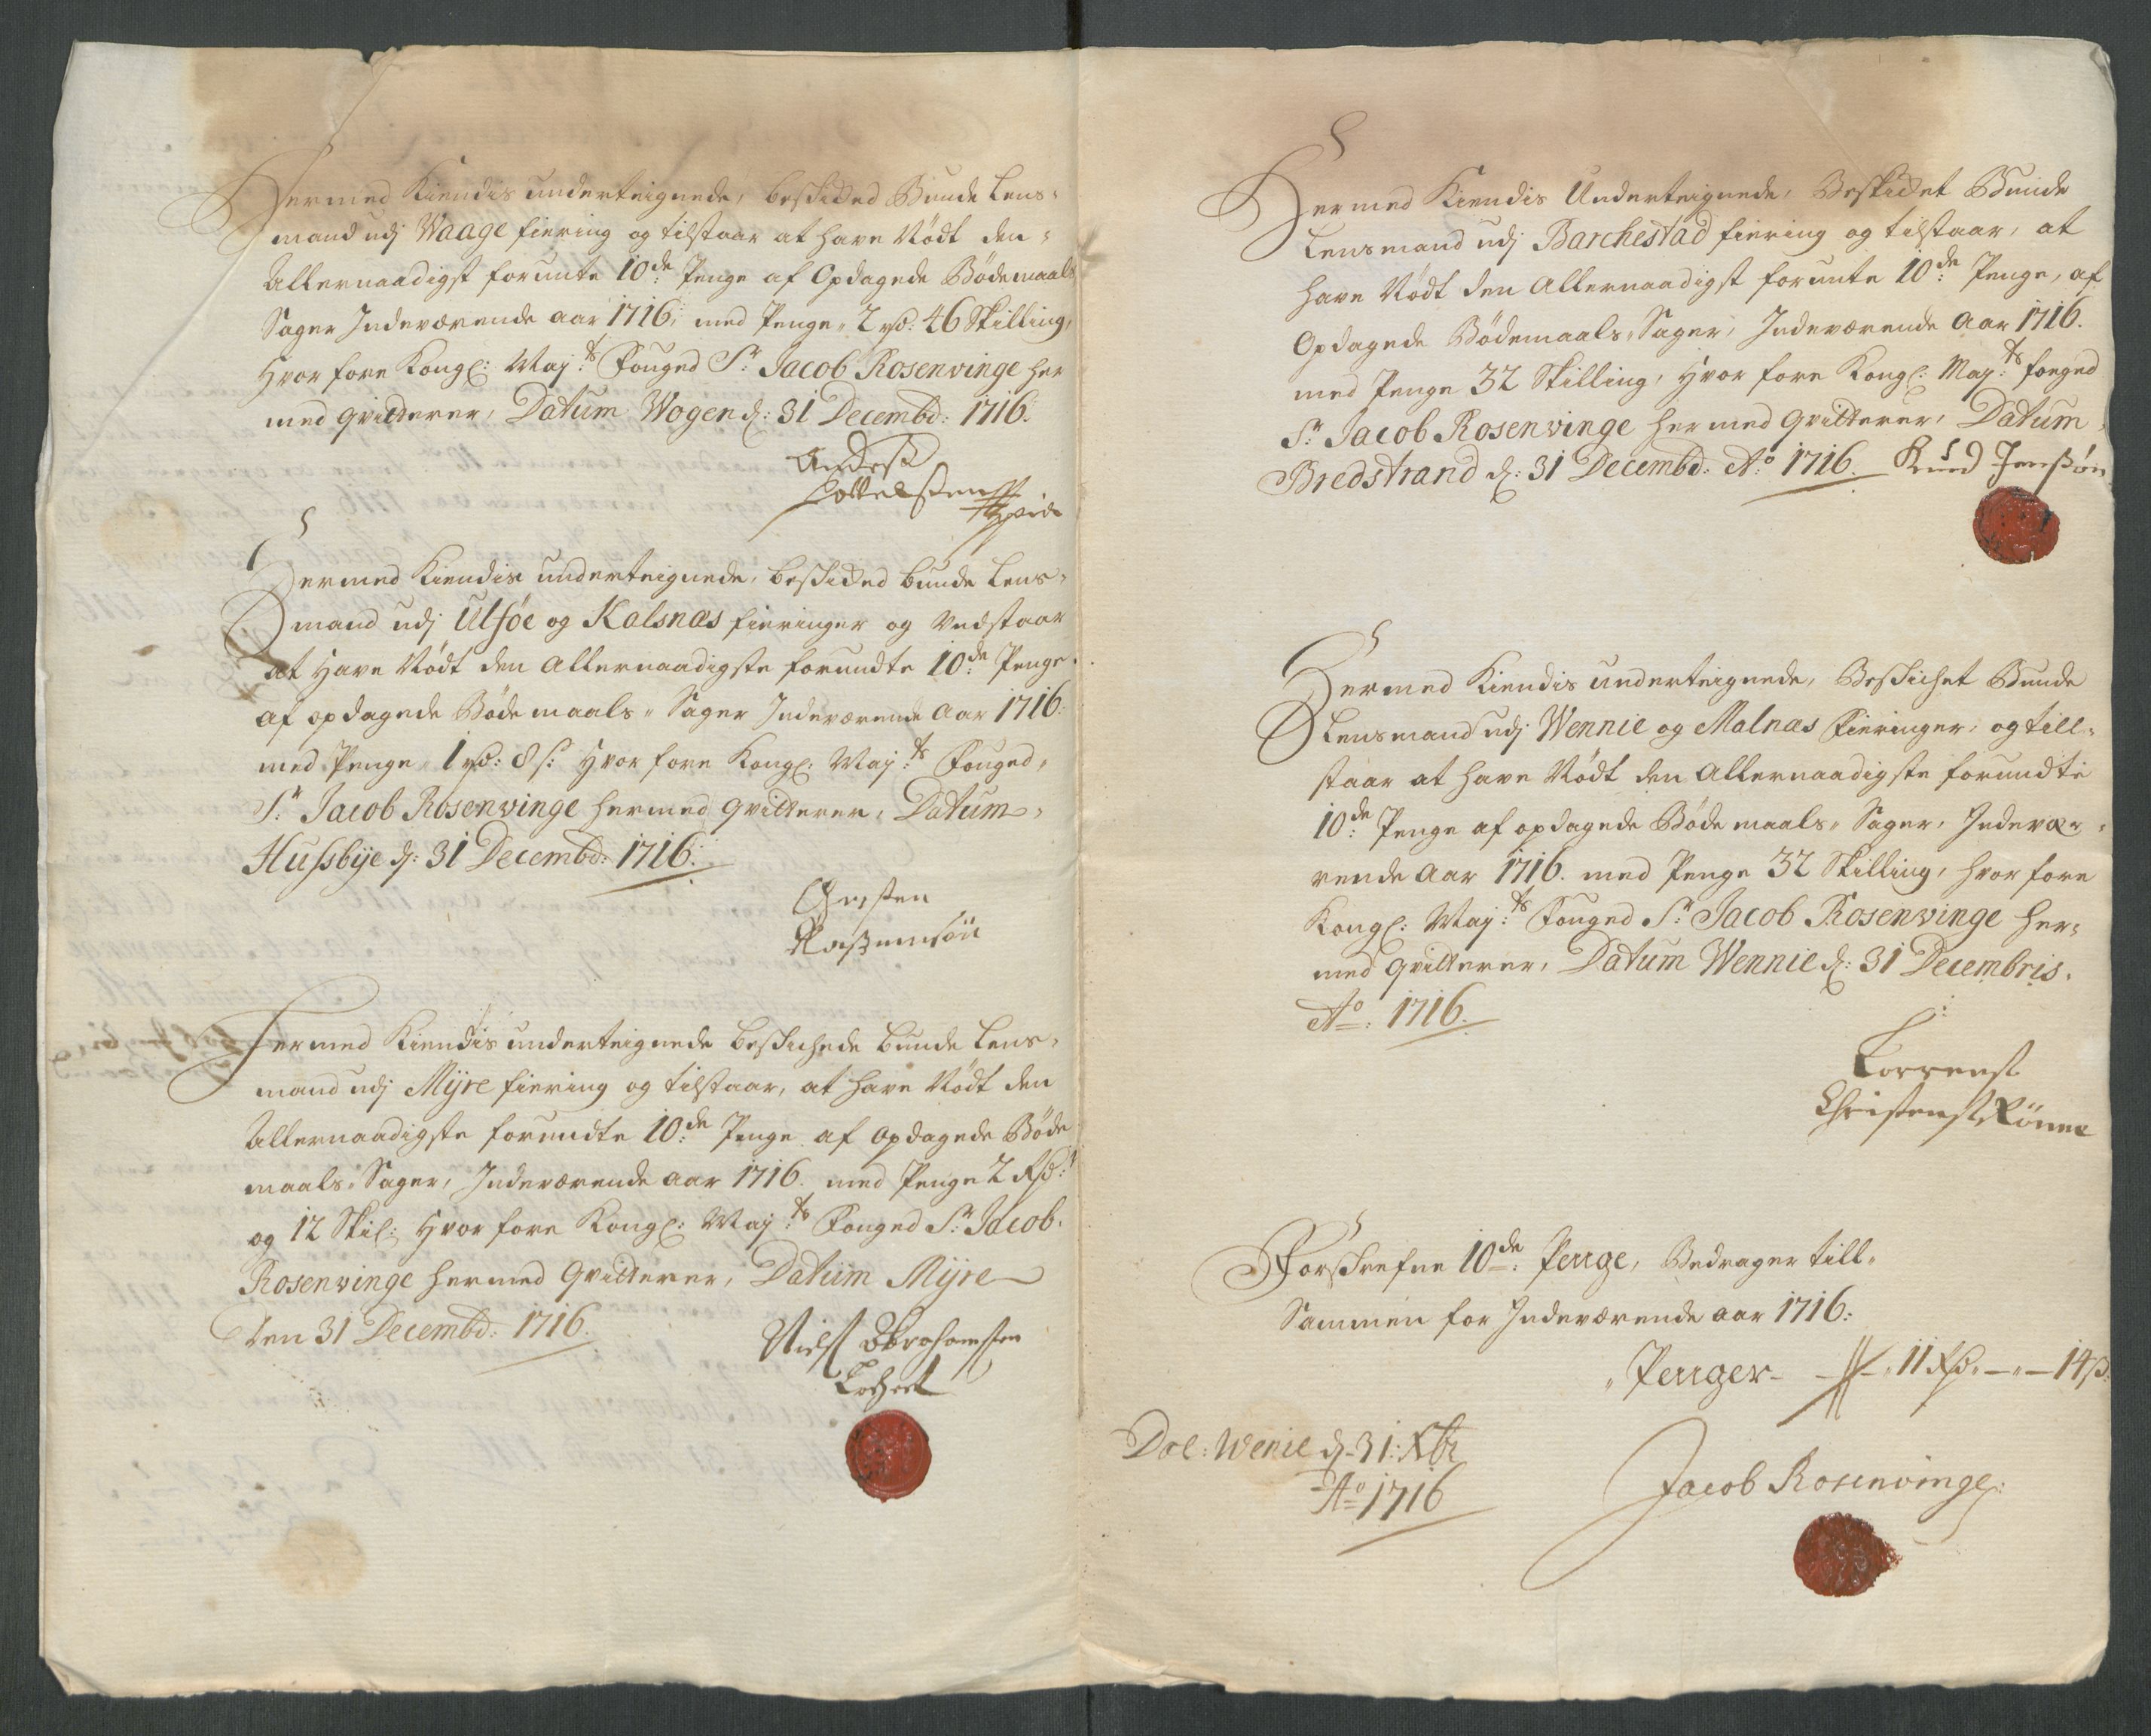 Hermed Kiendis underteignede, beskicked Bunde Lens-
mand udj Waage fiering og tilstaar at have Nödt den
Allernaadigst forunte 10de: Penge af Opdagede Bödemaals
Sager Indeværende aar 1716, med Penge 2 rd: 46 Skilling,
Hvor fore Kongl: May:ts Fouged Sr. Jacob Rosenvinge her
med qvitterer, Datum Wogen d: 31 Decembd: 1716.
Hermed Kiendis underteignede, beskicked bunde Lens-
mand udj Ulföe og Kalsnæs fieringer og Vedstaar
at Have Nödt den Allernaadigste forundte 10de: Penge
af opdagede Bödemaals Sager Indeværende Aar 1716:
med Penge 1 rd: 8 s: Hvor fore Kongl: May:ts Fouged
Sr. Jacob Rosenvinge hermed qvitterer, Datum
Hussbÿe d: 31 Decembd: 1716.
Hermed Kiendis underteignede beskichede bunde Lens-
mand udj Mÿre fiering og tilstaar, at have Nödt den
Allernaadigste forundte 10de: Penge af Opdagede Böde
maals Sager, Indeværende aar 1716. med Penge 2 Rd:
og 12 Skil: Hvor fore Kongl: May:ts Fouged Sr. Jacob
Rosenvinge hermed Qvitterer, Datum Mÿre
den 31 Decembd: 1716.
Niels Abrahamsen
Hermed Kiendis Underteignede, Beskicket Bunde
Lensmand udj Barchestad fiering og tilstaar, at
have Nödt den Allernaadigst forunte 10de: Penge, af
Opdagede Bödemaals Sager, Indeværende Aar 1716.
med Penge 32 Skilling, Hvor fore Kongl: May:ts foeged
Sr. Jacob Rosenvinge hermed Qvitterer, Datum
Bredstrand d: 31 Decembd: Ao 1716. Knud Jensön
Hermed Kiendis underteignede, Beskichet Bunde
Lensmand udj Wennie og Malnæs Fieringer, og till-
staar at have Nödt den Allernaadigste forundte
10de: Penge af opdagede Bödemaals Sager, Indevær-
rende Aar 1716. med Penge 32 Skilling, hvor fore
Kongl: May:ts Fouged Sr. Jacob Rosenvinge her-
med qvitterer, Datum Wennie d: 31 Decembris.
Ao: 1716.
Christens Rönne
Forskrefne 10de: Penge, Bedrager till-
Sammen for Indeværende aar 1716:
Penger 11 Rd 14 s
Dat: Wenie d. 31: Xbr
Ao 1716
Jacob Rosenvinge